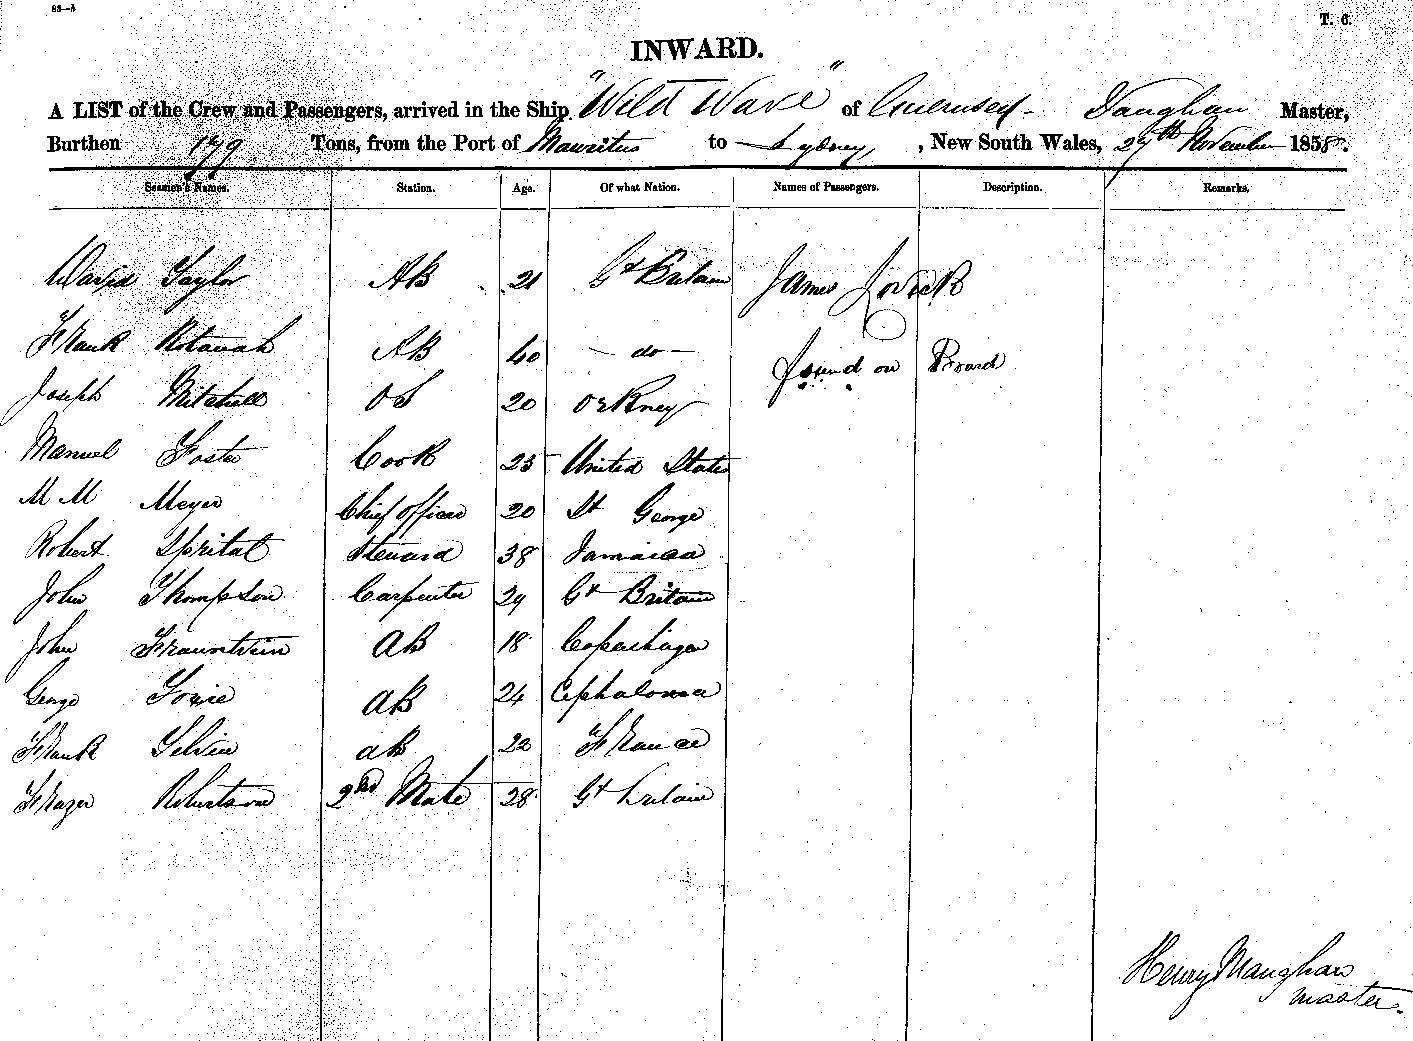 83—A
T. 6.
INWARD.
A LIST of the Crew and Passengers, arrived in the Ship "Wild Wave" of Guernsey - Vaughan Master,
Burthen 179 Tons, from the Port of Mauritius to Sydney, New South Wales, 27th November 1858.
Seamen's Names. Station. Age. Of what Nation. Names of Passengers. Description. Remarks.
David Taylor AB 21 Gt Britain James Lovick
Frank AB 40 - do - found on Board
Joseph Mitchell OS 20 Orkney
Manuel Foster Cook 25 United States
M M Meyer Chief Officer 20 St George
Robert Sprital Steward 38 Jamaica
John Thompson Carpenter 29 Gt Britain
John AB 18 Copenhagen
George AB 24 Cephalonia
Frank AB 22 France
Frazer Robertson 2nd Mate 28 Gt Britain
Henry Maughan
master.